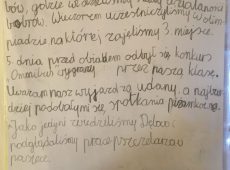 bów, gdzie widzieliśmy
bobrów. Wieczorem uczestniczyliśmy w olim
piadzie na której zajęliśmy 3. miejsce.
5 dnia przed obiadem odbył się konkurs
Omnibus wygrany przez naszą klasę.
Uważam nasz wyjazd za udany, a najbar
dziej podobały mi się spotkania
Jako jedyni zwiedziliśmy
podglądaliśmy pracę pszczelarza
pasiece.